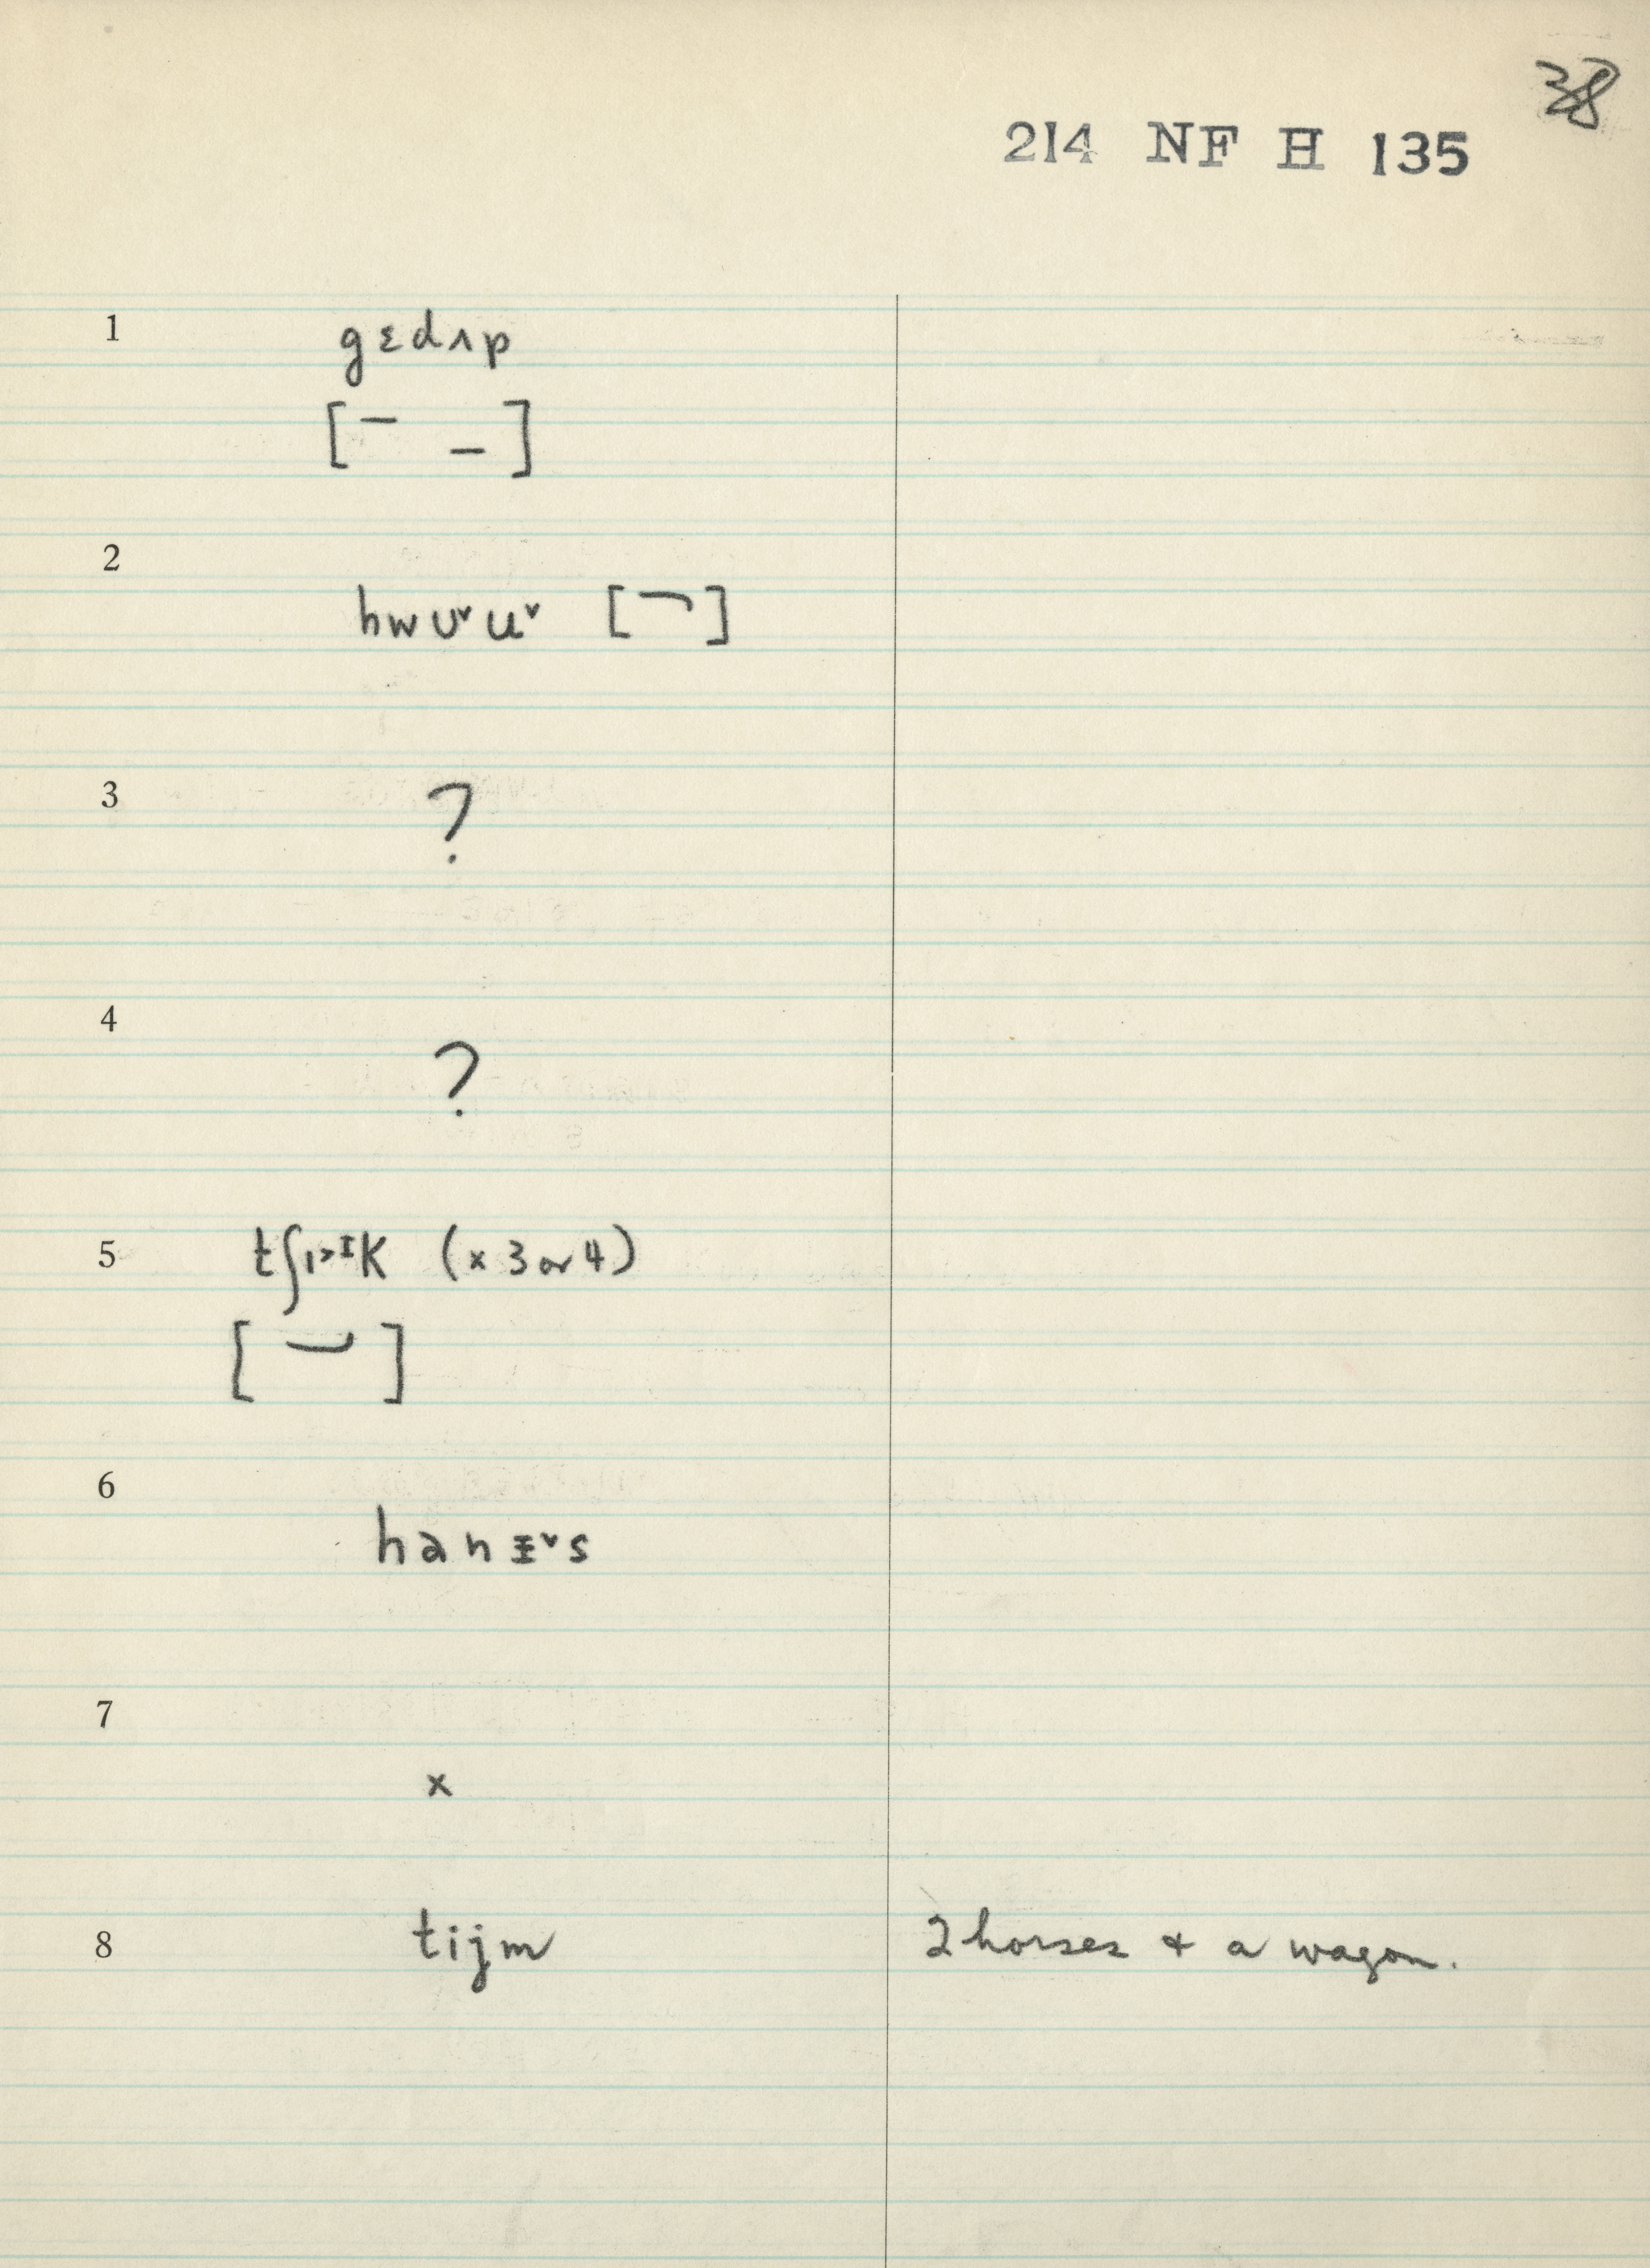 38
214 NF H 135
1 gɛdʌp
[¯ _]
2 hwʊ˅u˅ [¬]
3 ?
4 ?
5 (x 3 or 4)
6
7 x
8 tijm 2 horses & a wagon.